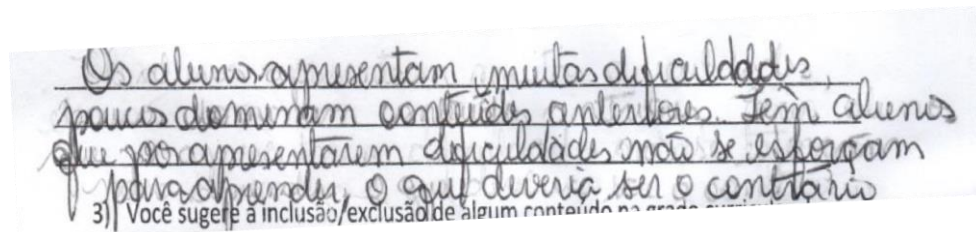 Os alunos apresentam muitas dificuldades,
poucos dominam conteúdos anteriores. Tem alunos
que por apresentarem dificuldades não se esforçam
para aprender, o que deveria ser o contrário
3) Você sugere a inclusão/exclusão de algum conteúdo na grade